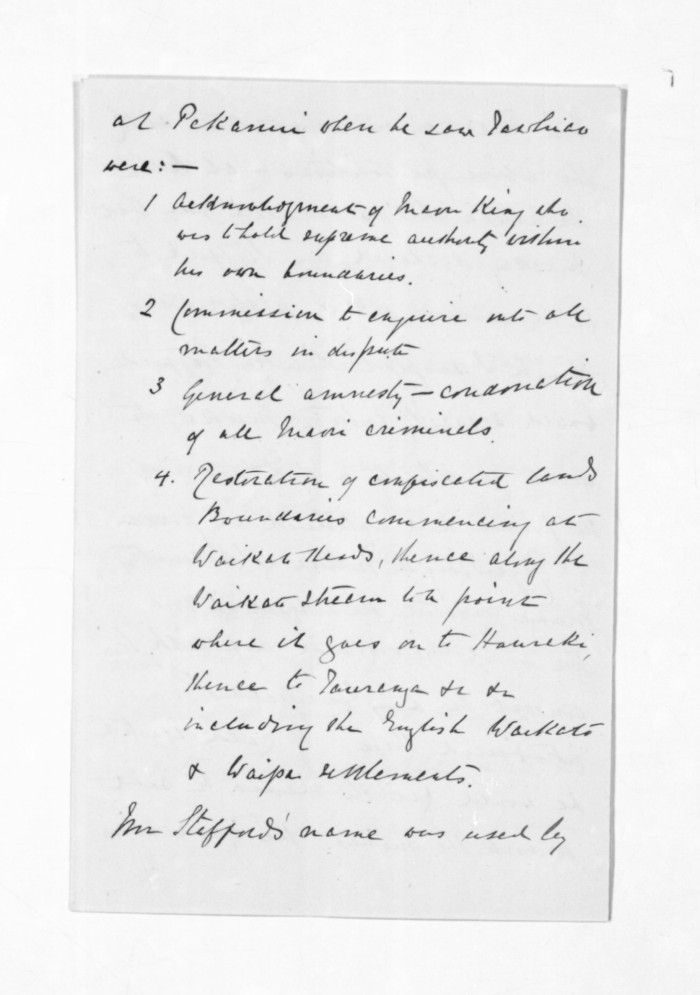 at Pekanui when he saw Tawhiao
were:—
1 Acknowledgment of Maori King who
was to hold supreme authority within
his own boundaries.
2 Commission to enquire into all
matters in dispute
3 General amnesty — condonation
of all Maori criminals.
4. Restoration of confiscated lands
Boundaries commencing at
Waikato Heads, thence along the
Waikato stream to a point
where it goes on to Hauraki,
thence to Tauranga &c &c
including the English Waikato
& Waipa settlements.
Mr Stafford's name was used by